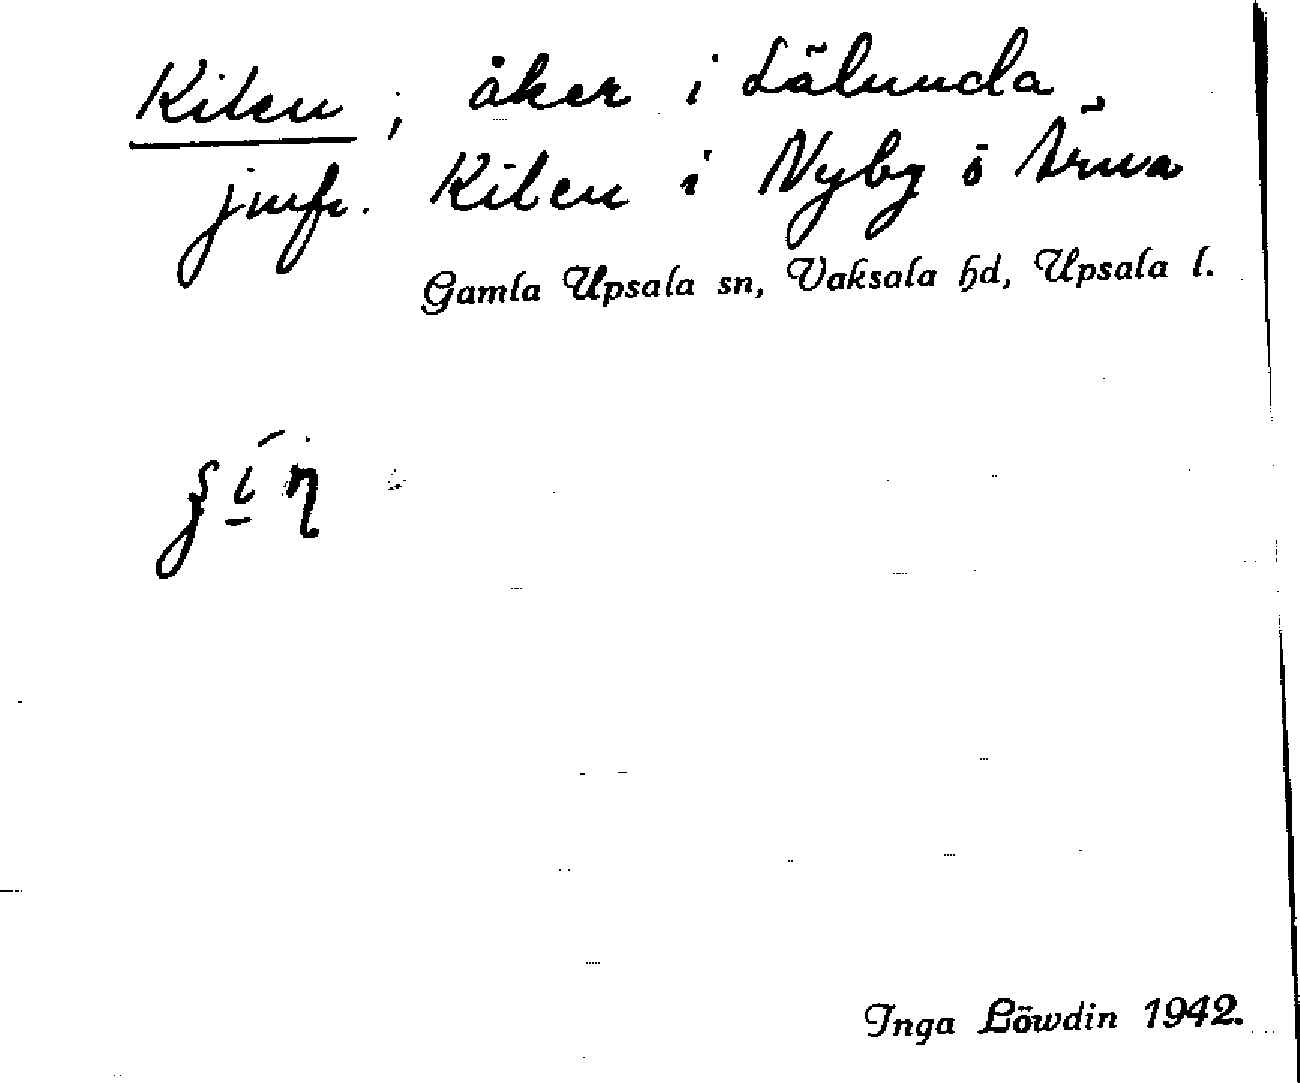 Kilen, åker i Lälunda,
jmfr. Kilen i Nyby ö Ärna
Gamla Upsala sn, Vaksala hd, Upsala l.
Inga Löwdin 1942.